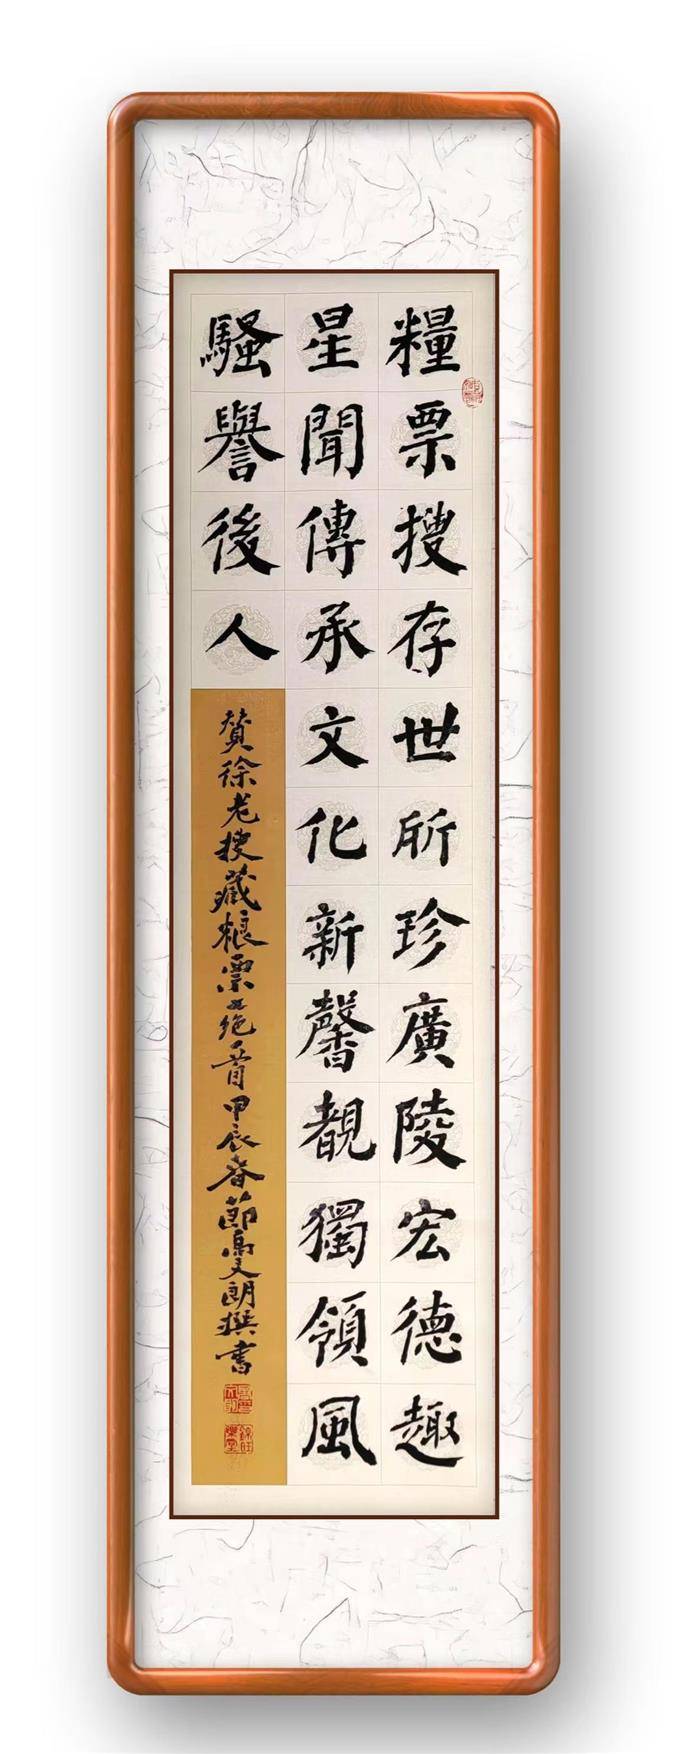 糧票搜存世所珍廣陵宏德趣
星聞傳承文化新馨覩獨領風
騷譽後人
贊徐老搜藏粮票七绝一首甲辰春節高文朗撰書